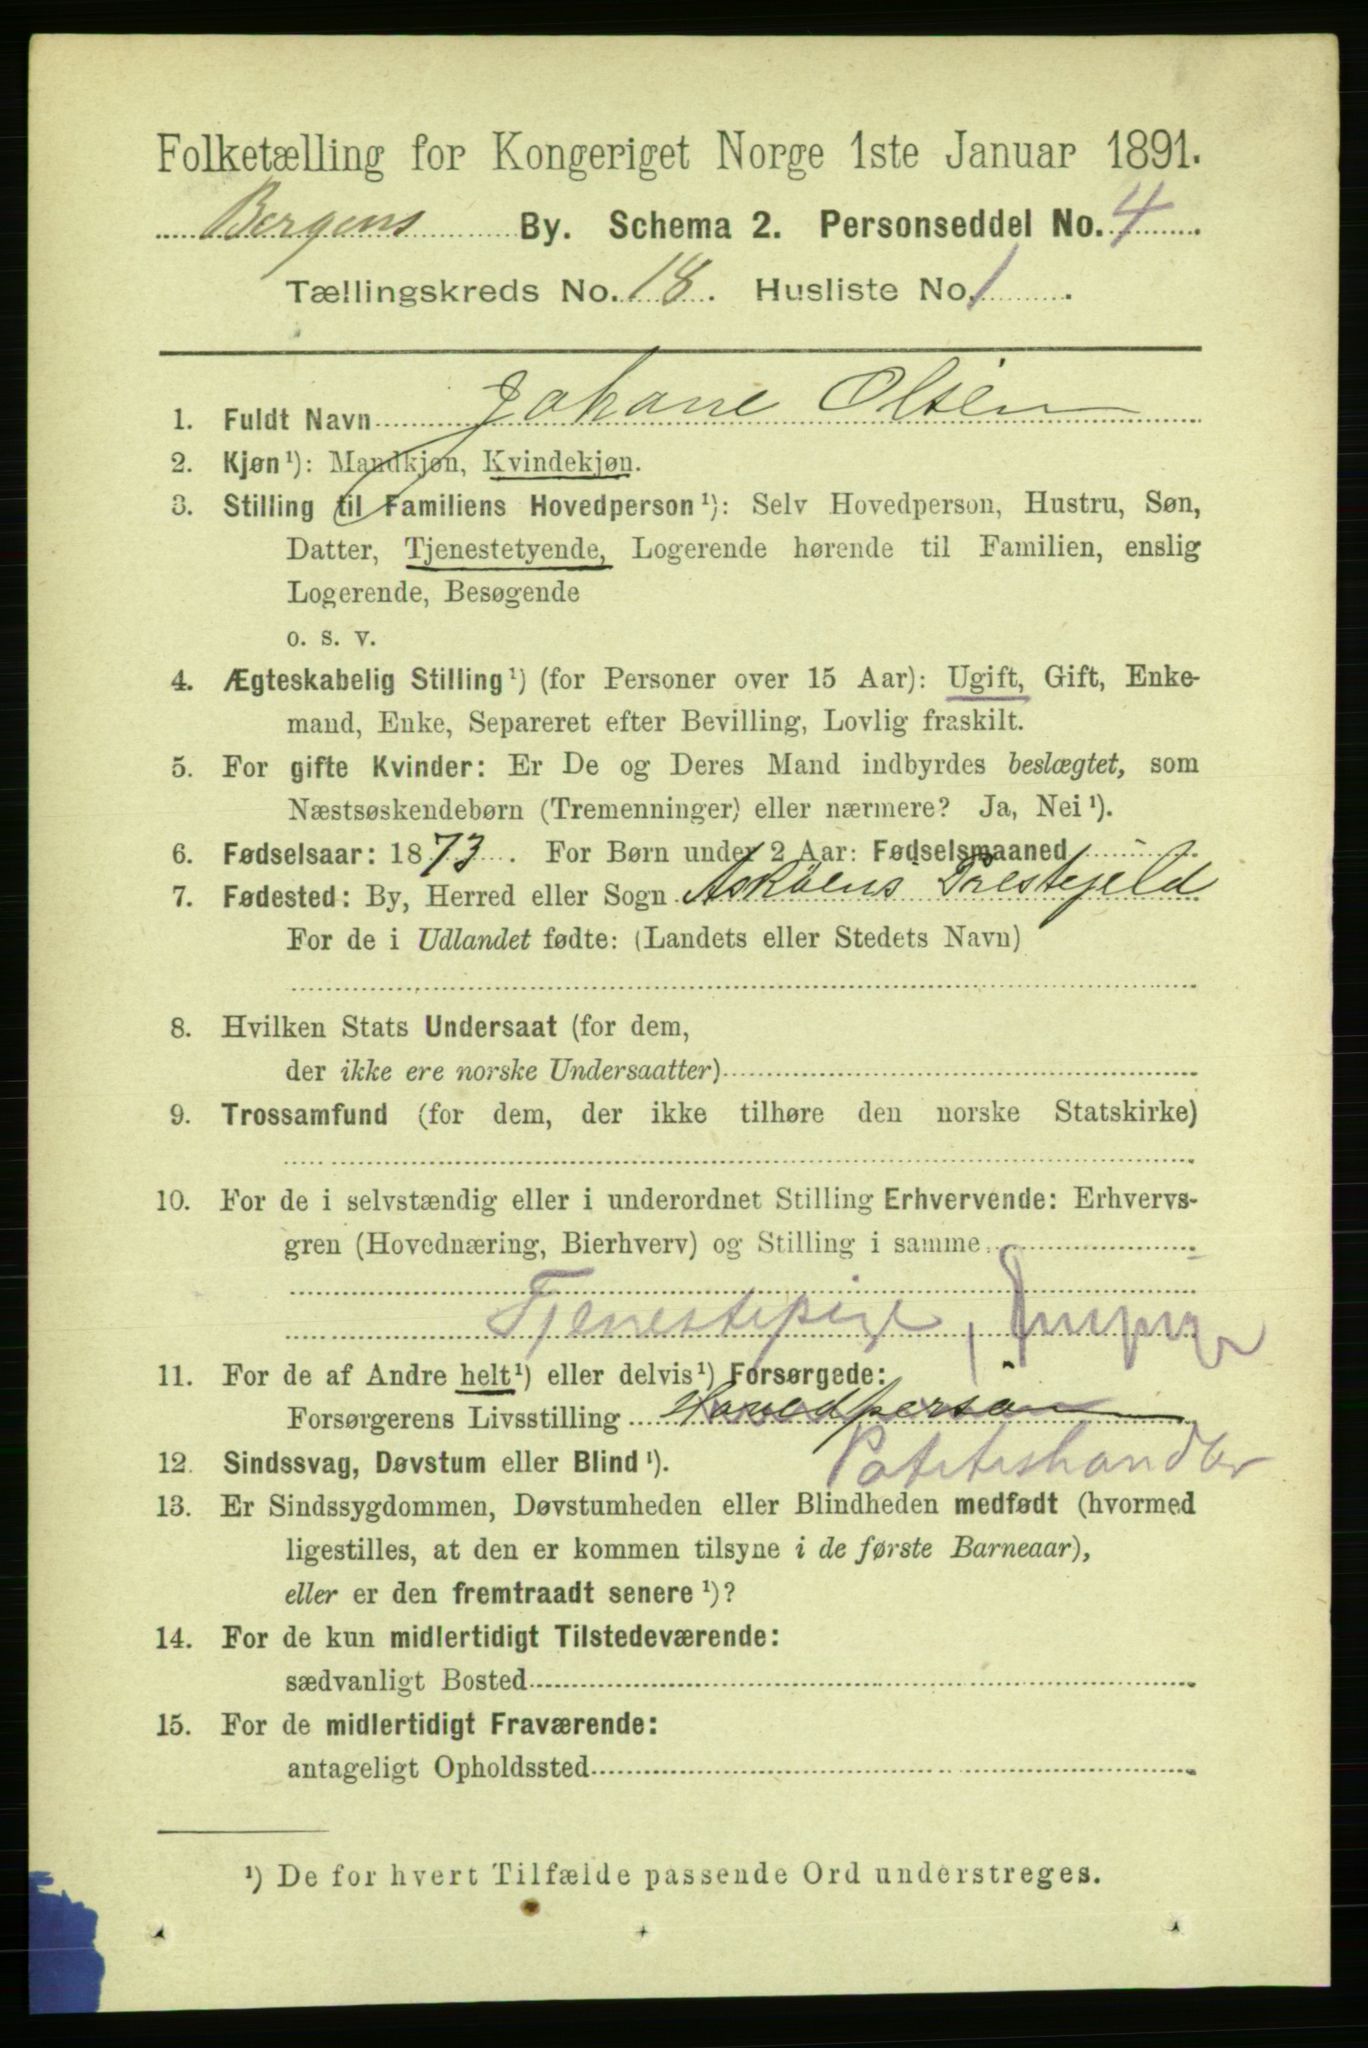 Folketælling for Kongeriget Norge 1ste Januar 1891.
Bergens By. Schema 2. Personseddel No. 4.
Tællingskreds No. 18. Husliste No. 1.
1. Fuldt Navn Johane Olsen
2. Kjøn¹): Mandkjøn, Kvindekjøn.
3. Stilling til Familiens Hovedperson¹): Selv Hovedperson, Hustru, Søn,
Datter, Tjenestetyende, Logerende hørende til Familien, enslig
Logerende, Besøgende
o. s. v.
4. Ægteskabelig Stilling¹) (for Personer over 15 Aar): Ugift, Gift, Enke-
mand, Enke, Separeret efter Bevilling, Lovlig fraskilt.
5. For gifte Kvinder: Er De og Deres Mand indbyrdes beslægtet, som
Næstsøskendebørn (Tremenninger) eller nærmere? Ja, Nei¹).
6. Fødselsaar: 1873. For Børn under 2 Aar: Fødselsmaaned
7. Fødested: By, Herred eller Sogn Askøens Prestejeld
For de i Udlandet fødte: (Landets eller Stedets Navn)
8. Hvilken Stats Undersaat (for dem,
der ikke ere norske Undersaatter)
9. Trossamfund (for dem, der ikke tilhøre den norske Statskirke)
10. For de i selvstændig eller i underordnet Stilling Erhvervende: Erhvervs-
gren (Hovednæring, Bierhverv) og Stilling i samme
Tjenestepige,
11. For de af Andre helt¹) eller delvis¹) Forsørgede:
Forsørgerens Livsstilling Hovedperson
12. Sindssvag, Døvstum eller Blind¹).
13. Er Sindssygdommen, Døvstumheden eller Blindheden medfødt (hvormed
ligestilles, at den er kommen tilsyne i de første Barneaar),
eller er den fremtraadt senere¹)?
14. For de kun midlertidigt Tilstedeværende:
sædvanligt Bosted
15. For de midlertidigt Fraværende:
antageligt Opholdssted
¹) De for hvert Tilfælde passende Ord understreges.